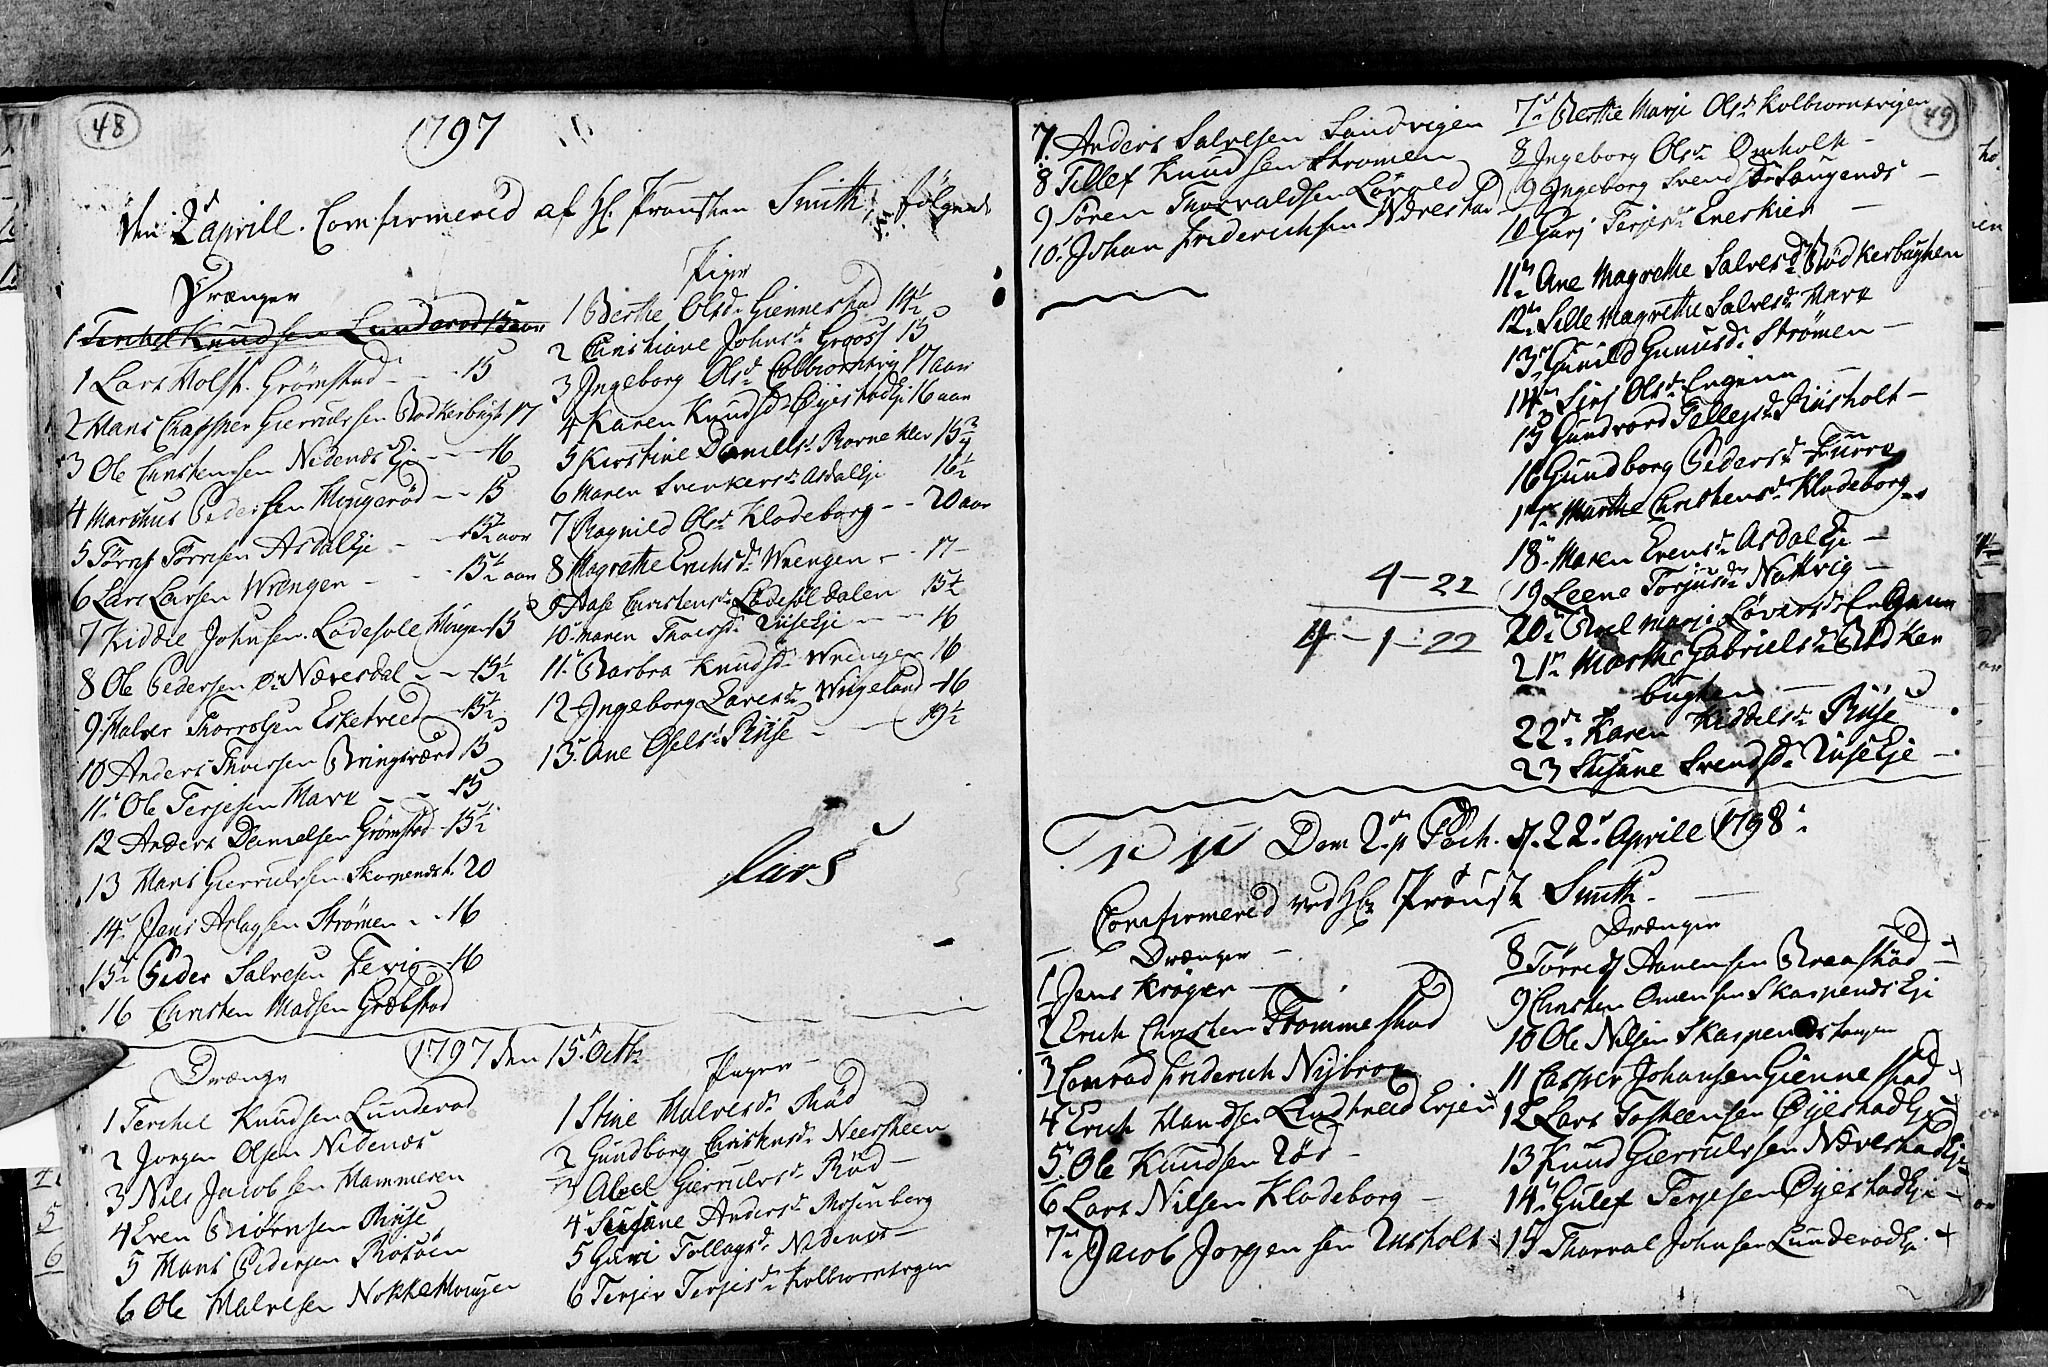 48
1797
den 2d aprill. Comfirmered af H. Pronsten Smith, følgende
Drænger
1 Terchel Knudsen Lunderod 15 aar
1 Lars Molst. Grømstad - - 15
2 Hans Chasper Gierulvsen Rodkerbugt 17
3 Ole Christensen Nedenæs Eje - - 16
4 Marchus Pedersen Mougerød - - 15
5 Törris Törresen Asdal Eje - - aar
6 Lars Larsen Wrengen - - 15½ aar
7 Kiddel Johnsen Lødesoll Mougen 15
8 Ole Pedersen Næresdal - - 15½
9 Halver Thorrolsen Esketveed 15½
10 Anders Thorssen Bringsværd 15
11 Ole Terjesen Mark - - 15
12 Anders Danielsen Grømstad 15½
13 Hans Gierulvsen Skarpends h. 20
14 Jens Aslagsen Strømen - - 16
15 Peder Salvesen Fevig 16
16 Christen Madsen Græbstad
Piger
1 Berthe Olsd. Giennestad 14½
2 Christiane Johnsd. Groos 15
3 Ingeborg Olsd. Colbiornsvig 17 aar
4 Karen Knudsd. Øyestad Eje 16 aar
5 Kirstine Danielsd. Rorne Klev 15¾
6 Maren Svenkersd. Asdal Eje 16½
7 Ragnild Olsd. Klodeborg - - 20 aar
8 Magrethe Erichsd. Wrengen - - 17 -
9 Aase Christensd. Lødesøl Dalen 15½
10 Maren Thorsd. Riise Eje - - - 16
11 Barbra Knudsd. Wrengen 16
12 Ingeborg Larsd. Wrigeland - 16
13 Ane Oselsd. Riise - - 19½
Lars
1797 den 15. Octb
Drænge
1 Terchel Knudsen Lunderod
2 Jorgen Olsen Nedenæs
3 Nils Jacobsen Hammeren
4 Even Biörnsen Riise
5 Hans Pedersen Rosøen
6 Ole Halvesen Nokke Mougen
Piger -
1 Stine Halvesd. Rød
2 Gundborg Christensd. Neersteen
3 Abel Gierulvsd. Rød -
4 Susane Andersd. Rosenberg
5 Guri Tollagsd. Nedenæs -
6 Terjer Terjesd. Kolbiornsvgen
49
7. Anders Salvesen Sandvigen
8 Tellef Knudsen Strømen
9 Søren Thorvaldsen Lørold
10. Johan Friderichsen Nævestad
4 - 22
4 - 1 - 22
7 Berthe Marje Olsd. Kolbiornsvigen
8 Ingeborg Olsd. Omholt -
9 Ingeborg Svendsd. Saugends -
10 Gurj Terjesd. Eneskier -
11 Ane Magrethe Salvesd. Rødkerbugten
12 Sille Magrethe Salvesd. Mark
13 Gunild Gunusd. Strømen -
14 Sirj Olsd. Engenn -
15 Gundvord Tellefsd. Riisholt -
16 Gundborg Pedersd. Furre
17 Marthe Christensd. Klodeborg -
18 Maren Evensd. Asdal Eje -
19 Leene Torjusd. Nattvig -
20 Abel Marie Löversd. Engenn
21 Marthe Gabrielsd. Rødker
bugten -
22 Karen Kiddelsd. Riise
23 Susane Svendsd. Riise Eje -
Dom 2. p Pach. d. 22. Aprill 1798.
Confirmered ved Hr Pröust Smith. -
Drænger -
1 Jens Krøger -
2 Erich Christen Trommestad
3 Conrad Friderich Nijbroe
4 Erich Handsen Lindtveed Erjen
5 Ole Knudsen Rød -
6 Lars Nilsen Klodeborg -
7 Jacob Jorgensen Rusholt +
Drænger
8 Törres Aanensen Braastad +
9 Christen Omensen Skarpends Eje
10 Ole Nilsen Skarpendshougen
11 Casper Johansen Giennestad +
12 Lars Tosteensen Øyestad Eje +
13 Knud Gierrulvsen Næverstad Eje
14 Gulef Terjesen Øyestad Eje -
15 Thorval Johnsen Lunderod Ej. +